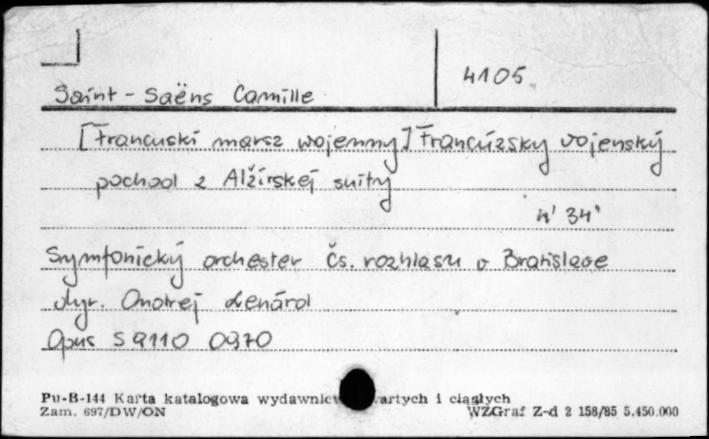 4105
Saint-Saëns Camille
[Francuski marsz wojenny] Francúzsky vojenský
pochod z Alžírskej suity
4' 34'
Symfonický orchester Čs. rozhlasu v Bratislave
dyr. Ondrej Lenárd
Opus S 9110 0970
Pu-B-144 Karta katalogowa wydawnictw zwartych i ciągłych
Zam. 697/DW/ON WZGraf Z-d 2 158/85 5.450.000